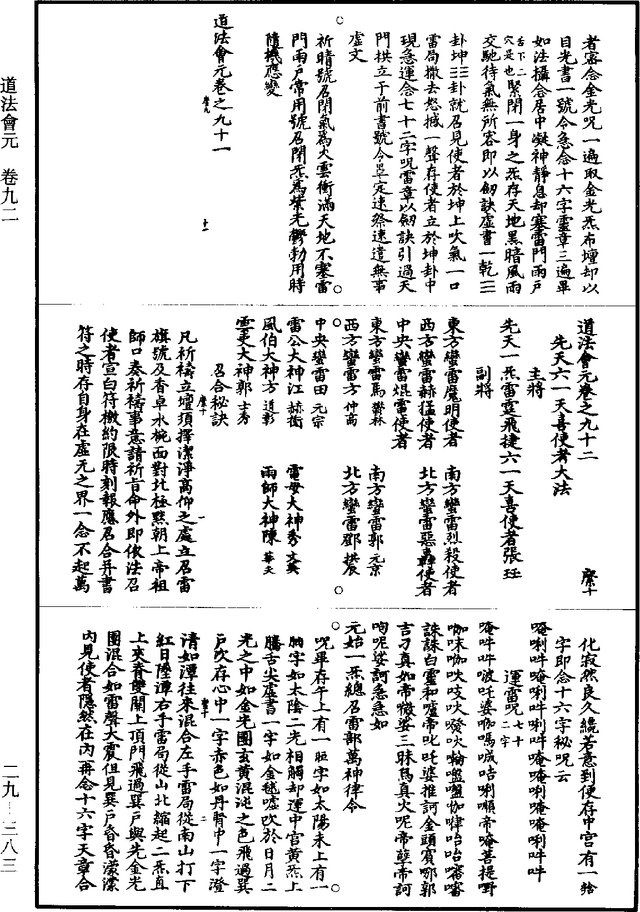 道法會元　卷九二
二九—三八三
者密念金光呪一遍取金光炁布壇却以
目光書一號令急念十六字靈章三遍畢
如法攝念居中凝神靜息却塞雷門雨戶
舌下二穴是也緊閉一身之炁存天地黑暗風雨
交馳待氣無所容即以劒訣虛書一乾☰
卦坤☷卦就召見使者於坤上吹氣一口
雷局撒去怒撼一聲存使者立於坤卦中
現急運念七十二字呪雷章以劒訣引過天
門拱立于前書號令早定速祭速遣無事
虛文
祈晴號召閉氣為火雲衝滿天地不塞雷
門雨戶常用號召閉炁為紫光鬱勃用時
隨機應變
道法會元卷之九十一
十一
道法會元卷之九十二
先天六一天喜使者大法
主將
先天一炁雷霆飛捷六一天喜使者張珏
副將
東方蠻雷魔明使者　南方蠻雷烈殺使者
西方蠻雷赫猛使者　北方蠻雷惡轟使者
中央蠻雷焜雷使者
東方蠻雷馬鬱林　南方蠻雷郭元京
西方蠻雷方仲高　北方蠻雷鄧拱辰
中央蠻雷田元宗
雷公大神江赫衝　電母大神秀文英
風伯大神方道彰　雨師大神陳華夫
雲吏大神郭士秀
召合秘訣
凡祈禱立壇須擇潔淨高仰之處立召雷
旗號及香卓水椀面對北極默朝上帝祖
師口奏祈禱事意請祈旨命外即依法召
使者宣白符檄約限時刻報應召合并書
符之時存自身在虛元之界一念不起萬
化寂然良久纔若意到便存中宮有一
字即念十六字秘呪云
唵唎吽唵唎吽唎吽唵唵唎唵唵唎吽吽
運雷呪七十二字
元始一炁總召雷部萬神律令
呪畢存午上有一字如太陽未上有一
字如太陰二光相觸却運中宮黃炁上
騰舌尖虛書一字如金毬噓吹於日月二
光之中如金光圈玄黃混沌之色飛過巽
戶次存心中一字赤色如丹腎中一字澄
清如潭往來混合左手雷局從南山打下
紅日陸潭右手雷局從山北縮起二炁直
上夾脊雙關上頂門飛過巽戶與先金光
圈混合如雷聲大震但見巽戶昏昏濛濛
內見使者隱然在內再念十六字天章合